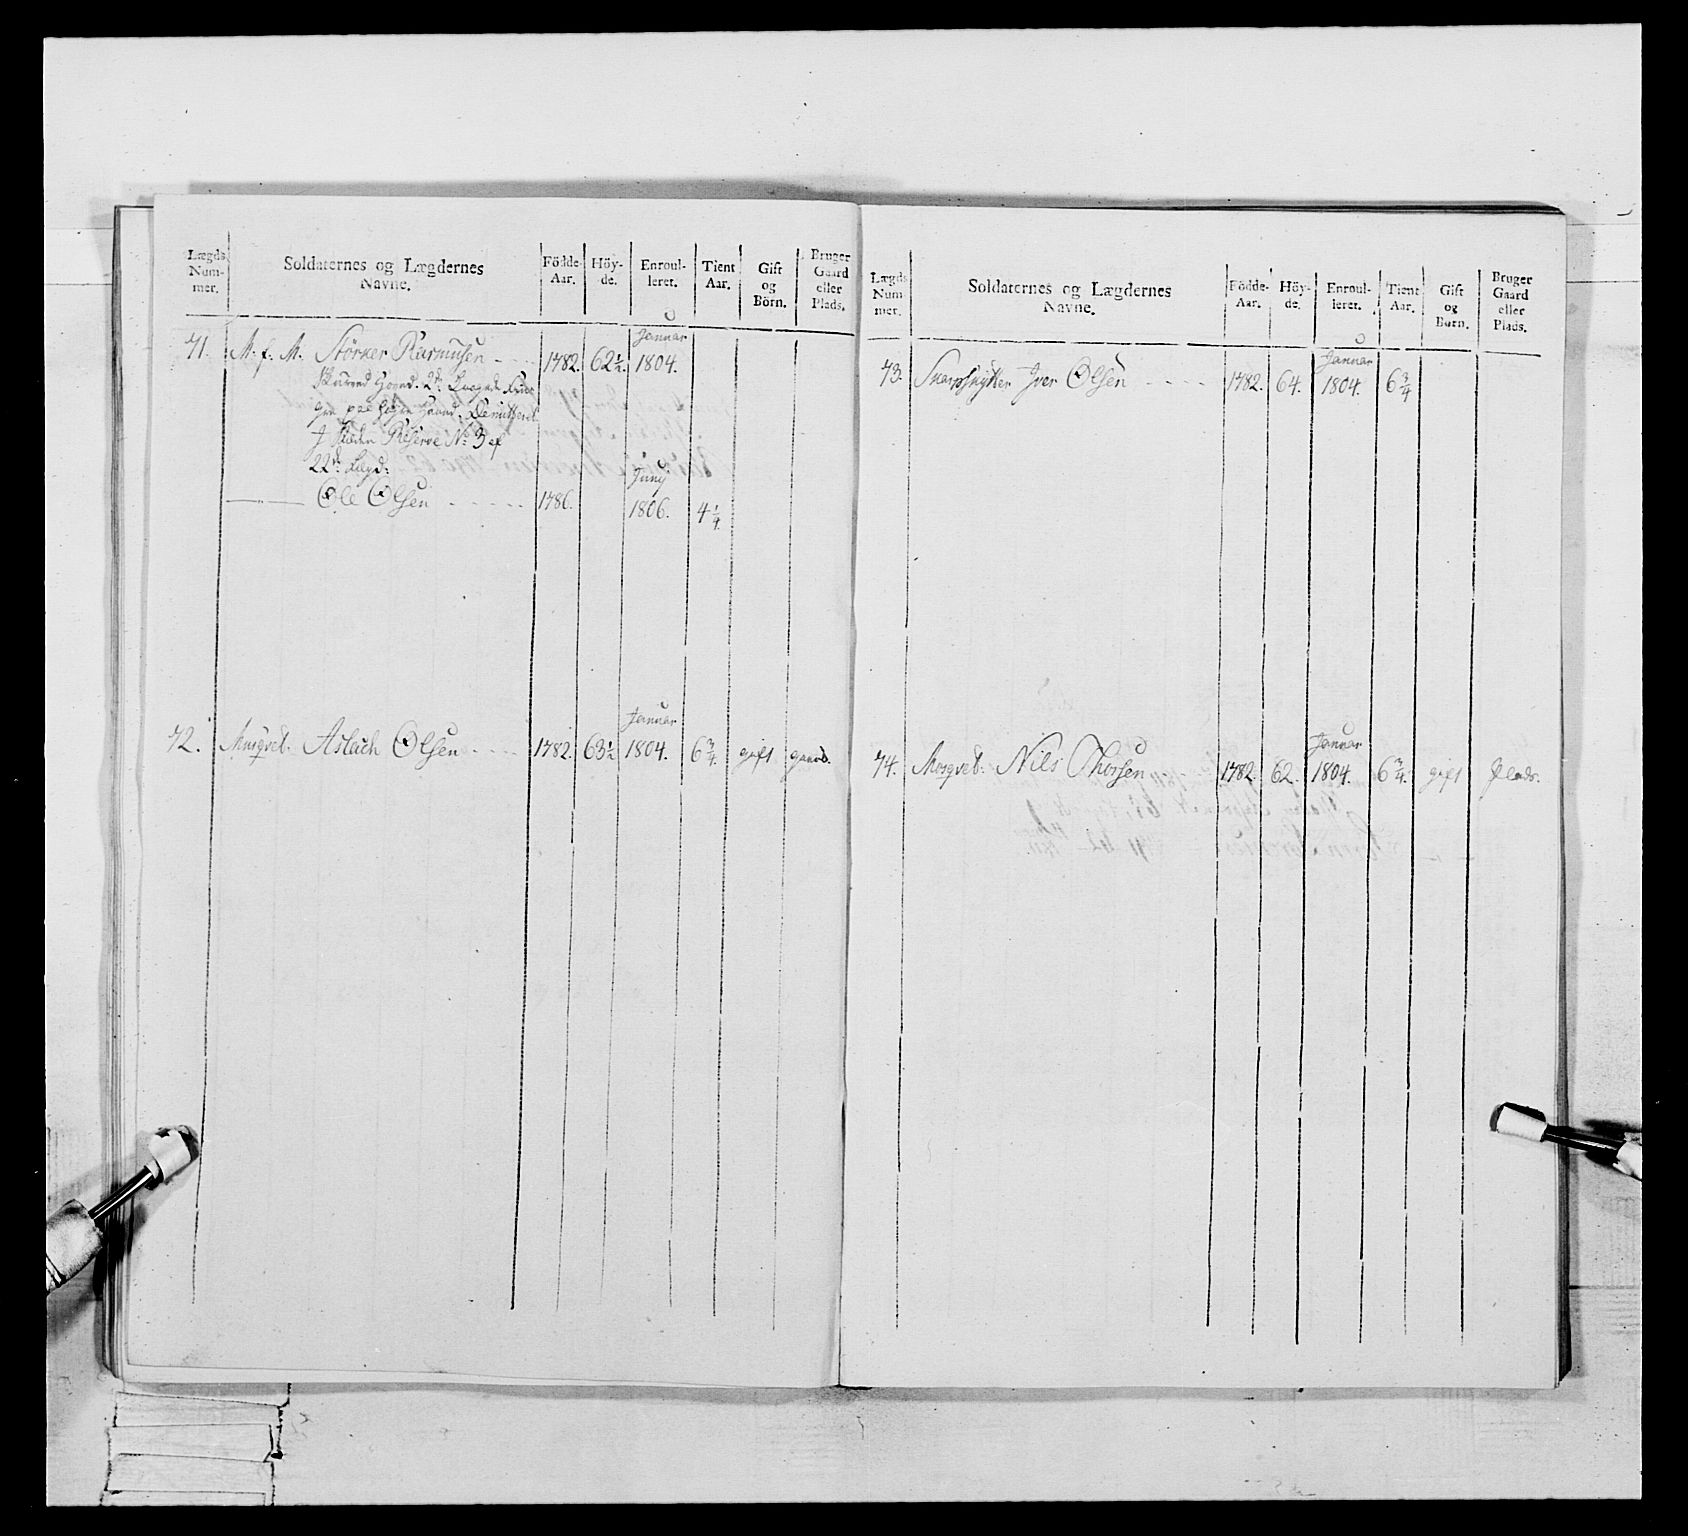 Lægds Num- mer.
Soldaternes og Lægdernes Navne.
Födde- Aar.
Höy- de.
Enroul- leret.
Tient Aar.
Gift og Börn.
Bruger Gaard eller Plads.
71. M. f. M. Störker Rasmusen - - - 1782. 62½. Januar 1804.
2de
gen paa höyre Haand.
J Reserve No 3 af
22de Lægd:
Ole Olsen - - - - - 1786. Juny 1806. 4¼.
72. Musqvet. Aslach Olsen - - - - 1782. 63½ Januar 1804. 6¾. gift gaard.
Lægds Num- mer.
Soldaternes og Lægdernes Navne.
Födde- Aar.
Höy- de.
Enroul- leret.
Tient Aar.
Gift og Börn.
Bruger Gaard eller Plads.
73. Skarpskytter Iver Olsen - - - - 1782. 64. Januar 1804. 6¾
74. Musqvet: Nils Thorsen 1782. 62. Januar 1804. 6¾. gift Plads.